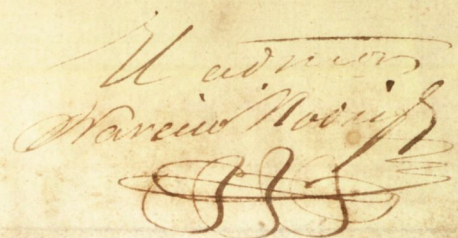 El admor
Narciso Rodrig